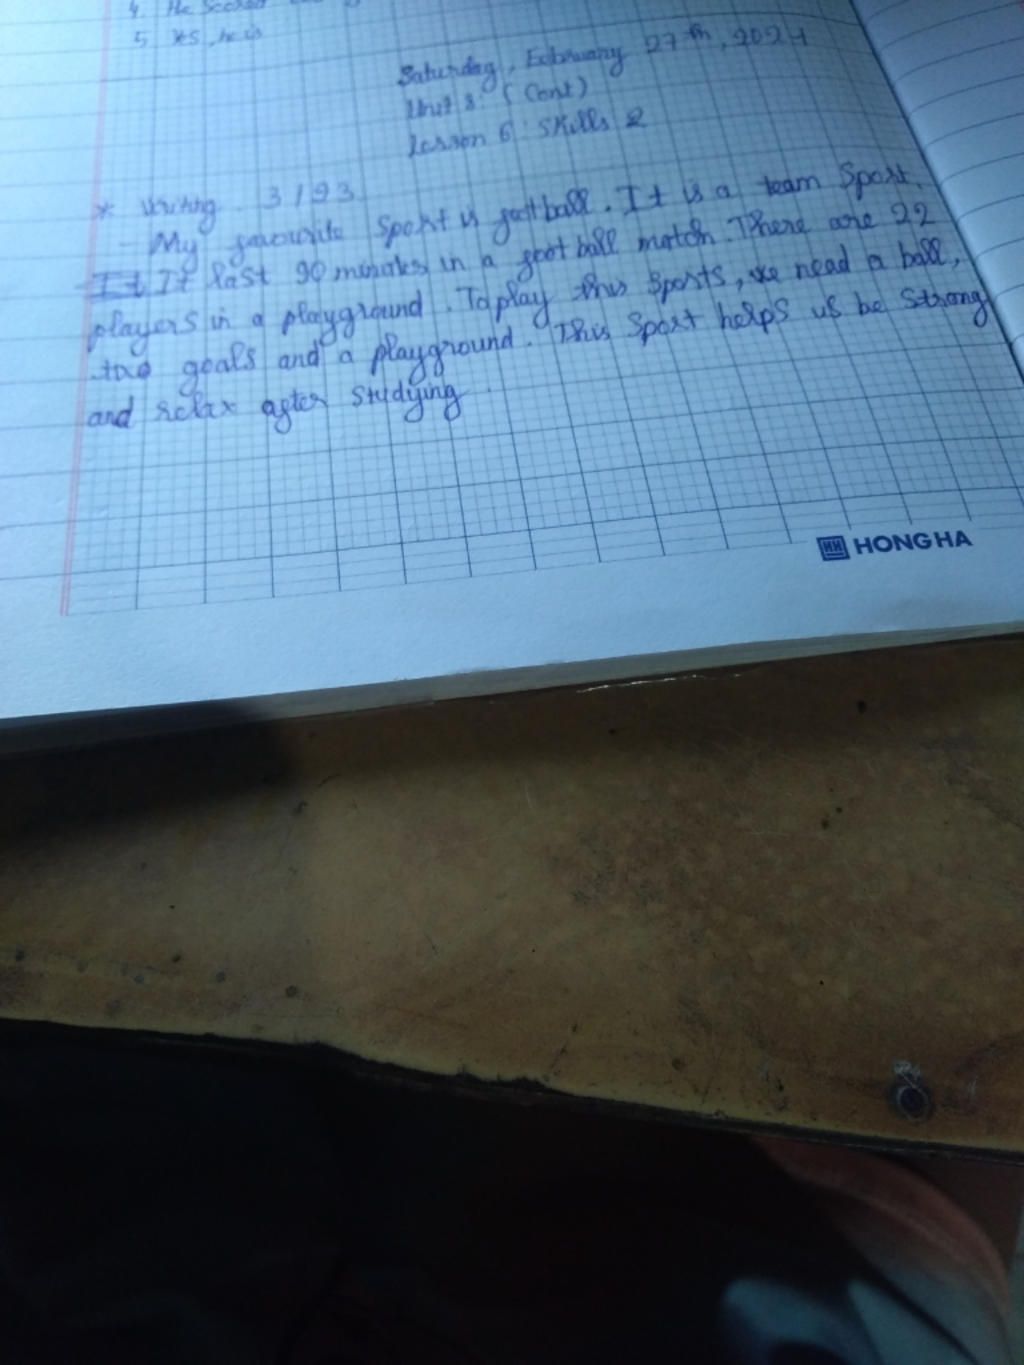 4. He Scored
5. Yes, he is
Saturday, February 27th, 2021
Unit 8: (Cont)
Lesson 6: Skills 2
* Writing. 3/93.
- My favourite Sport is football. It is a team Sport.
It It last 90 minutes in a foot ball match. There are 22
players in a playground. To play this sports, we need a ball,
two goals and a playground. This Sport helps us be Strong
and relax after Studying.
HH HONG HA